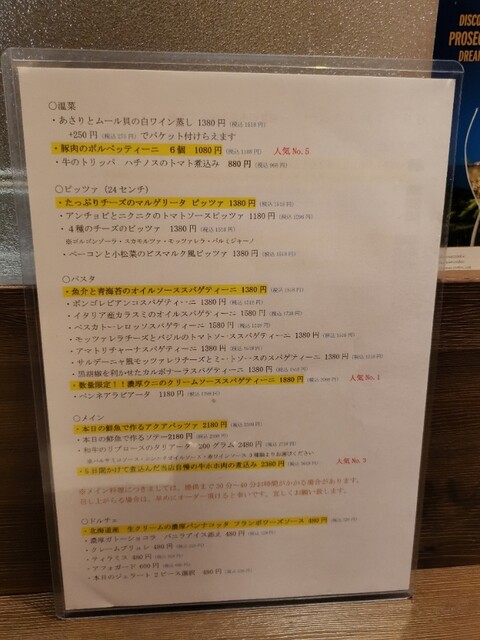 DISCO
PROSEC
DREAM
○温菜
・あさりとムール貝の白ワイン蒸し 1380円 (税込1518円)
+250円 (税込275円) でバケット付けらえます
・豚肉のポルペッティーニ 6個 1080円 (税込1188円) 人気No.5
・牛のトリッパ ハチノスのトマト煮込み 880円 (税込968円)
○ピッツァ (24センチ)
・たっぷりチーズのマルゲリータ ピッツァ 1380円 (税込1518円)
・アンチョビとニクニクのトマトソースピッツァ 1180円 (税込1298円)
・4種のチーズのピッツァ 1380円 (税込1518円)
※ゴルゴンゾーラ・スカモルツァ・モッツァレラ・パルミジャーノ
・ベーコンと小松菜のビスマルク風ピッツァ 1380円 (税込1518円)
○パスタ
・魚介と青海苔のオイルソーススパゲティーニ 1380円 (税込1518円)
・ボンゴレビアンコスパゲティーニ 1380円 (税込1518円)
・イタリア産カラスミのオイルスパゲティーニ 1580円 (税込1738円)
・ペスカトーレロッソスパゲティーニ 1580円 (税込1738円)
・モッツァレラチーズとバジルのトマトソーススパゲティーニ 1380円 (税込1518円)
・アマトリチャーナスパゲティーニ 1380円 (税込1518円)
・サルデーニャ風モッツァレラチーズとミートソースのスパゲティーニ 1380円
・黒胡椒を利かせたカルボナーラスパゲティーニ 1380円 (税込1518円)
・数量限定!!濃厚ウニのクリームソーススパゲティーニ 1880円 人気No.1
・ペンネアラビアータ 1180円 (税込1298円)
○メイン
・本日の鮮魚で作るアクアパッツァ 2180円
・本日の鮮魚で作るソテー2180円
・和牛のリブロースのタリアータ 200グラム 2480円
・5日間かけて煮込んだ当店自慢の牛ホホ肉の煮込み 2380円 人気No.
※メイン料理につきましては、提供まで30分〜40分お時間がかかる場合があります。
召し上がる場合は、早めにオーダー頂けると幸いです。宜しくお願い致します。
○ドルチェ
・北海道産 生クリームの濃厚パンナコッタ フランボワーズソース 480円
・濃厚ガトーショコラ バニラアイス添え 480円
・クレームブリュレ 480円
・ティラミス 480円
・アフォガード 480円
・本日のジェラート 2ピース選択 480円